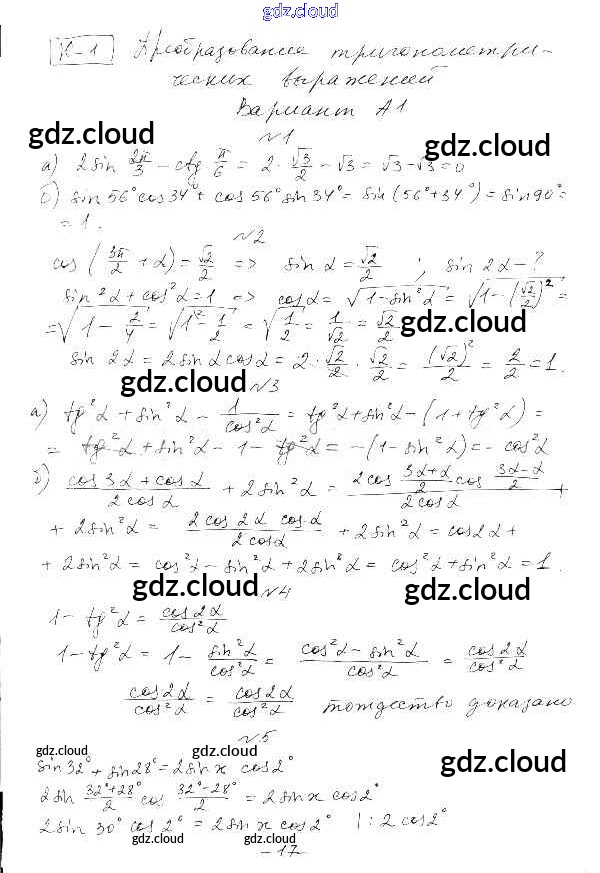 gdz.cloud
К-1 Преобразование тригонометри-
ческих выражений
Вариант А1
gdz.cloud gdz.cloud
№1
а) 2sin 2π/3 − ctg π/6 = 2 · √3/2 − √3 = √3 − √3 = 0
б) sin 56° cos 34° + cos 56° sin 34° = sin (56° + 34°) = sin 90° =
= 1.
№2
cos (3π/2 + α) = √2/2 => sin α = √2/2 ; sin 2α − ?
sin²α + cos²α = 1 => cos α = √(1 − sin²α) = √(1 − (√2/2)²) =
= √(1 − 2/4) = √(1 − 1/2) = √(1/2) = 1/√2 = √2/2
gdz.cloud
sin 2α = 2 sin α cos α = 2 · √2/2 · √2/2 = (√2)²/2 = 2/2 = 1.
gdz.cloud
№3
а) tg²α + sin²α − 1/cos²α = tg²α + sin²α − (1 + tg²α) =
= tg²α + sin²α − 1 − tg²α = −(1 − sin²α) = − cos²α
б) (cos 3α + cos α)/(2 cos α) + 2 sin²α = (2 cos (3α+α)/2 cos (3α−α)/2)/(2 cos α) +
+ 2 sin²α = (2 cos 2α cos α)/(2 cos α) + 2 sin²α = cos 2α +
+ 2 sin²α = cos²α − sin²α + 2 sin²α = cos²α + sin²α = 1.
gdz.cloud gdz.cloud
№4
1 − tg²α = cos 2α/cos²α
1 − tg²α = 1 − sin²α/cos²α = (cos²α − sin²α)/cos²α = cos 2α/cos²α
cos 2α/cos²α = cos 2α/cos²α тождество доказано
№5
gdz.cloud gdz.cloud gdz.cloud
sin 32° + sin 28° = 2 sin x cos 2°
2 sin (32°+28°)/2 cos (32°−28°)/2 = 2 sin x cos 2°
2 sin 30° cos 2° = 2 sin x cos 2° | : 2 cos 2°
gdz.cloud gdz.cloud gdz.cloud
− 17 −